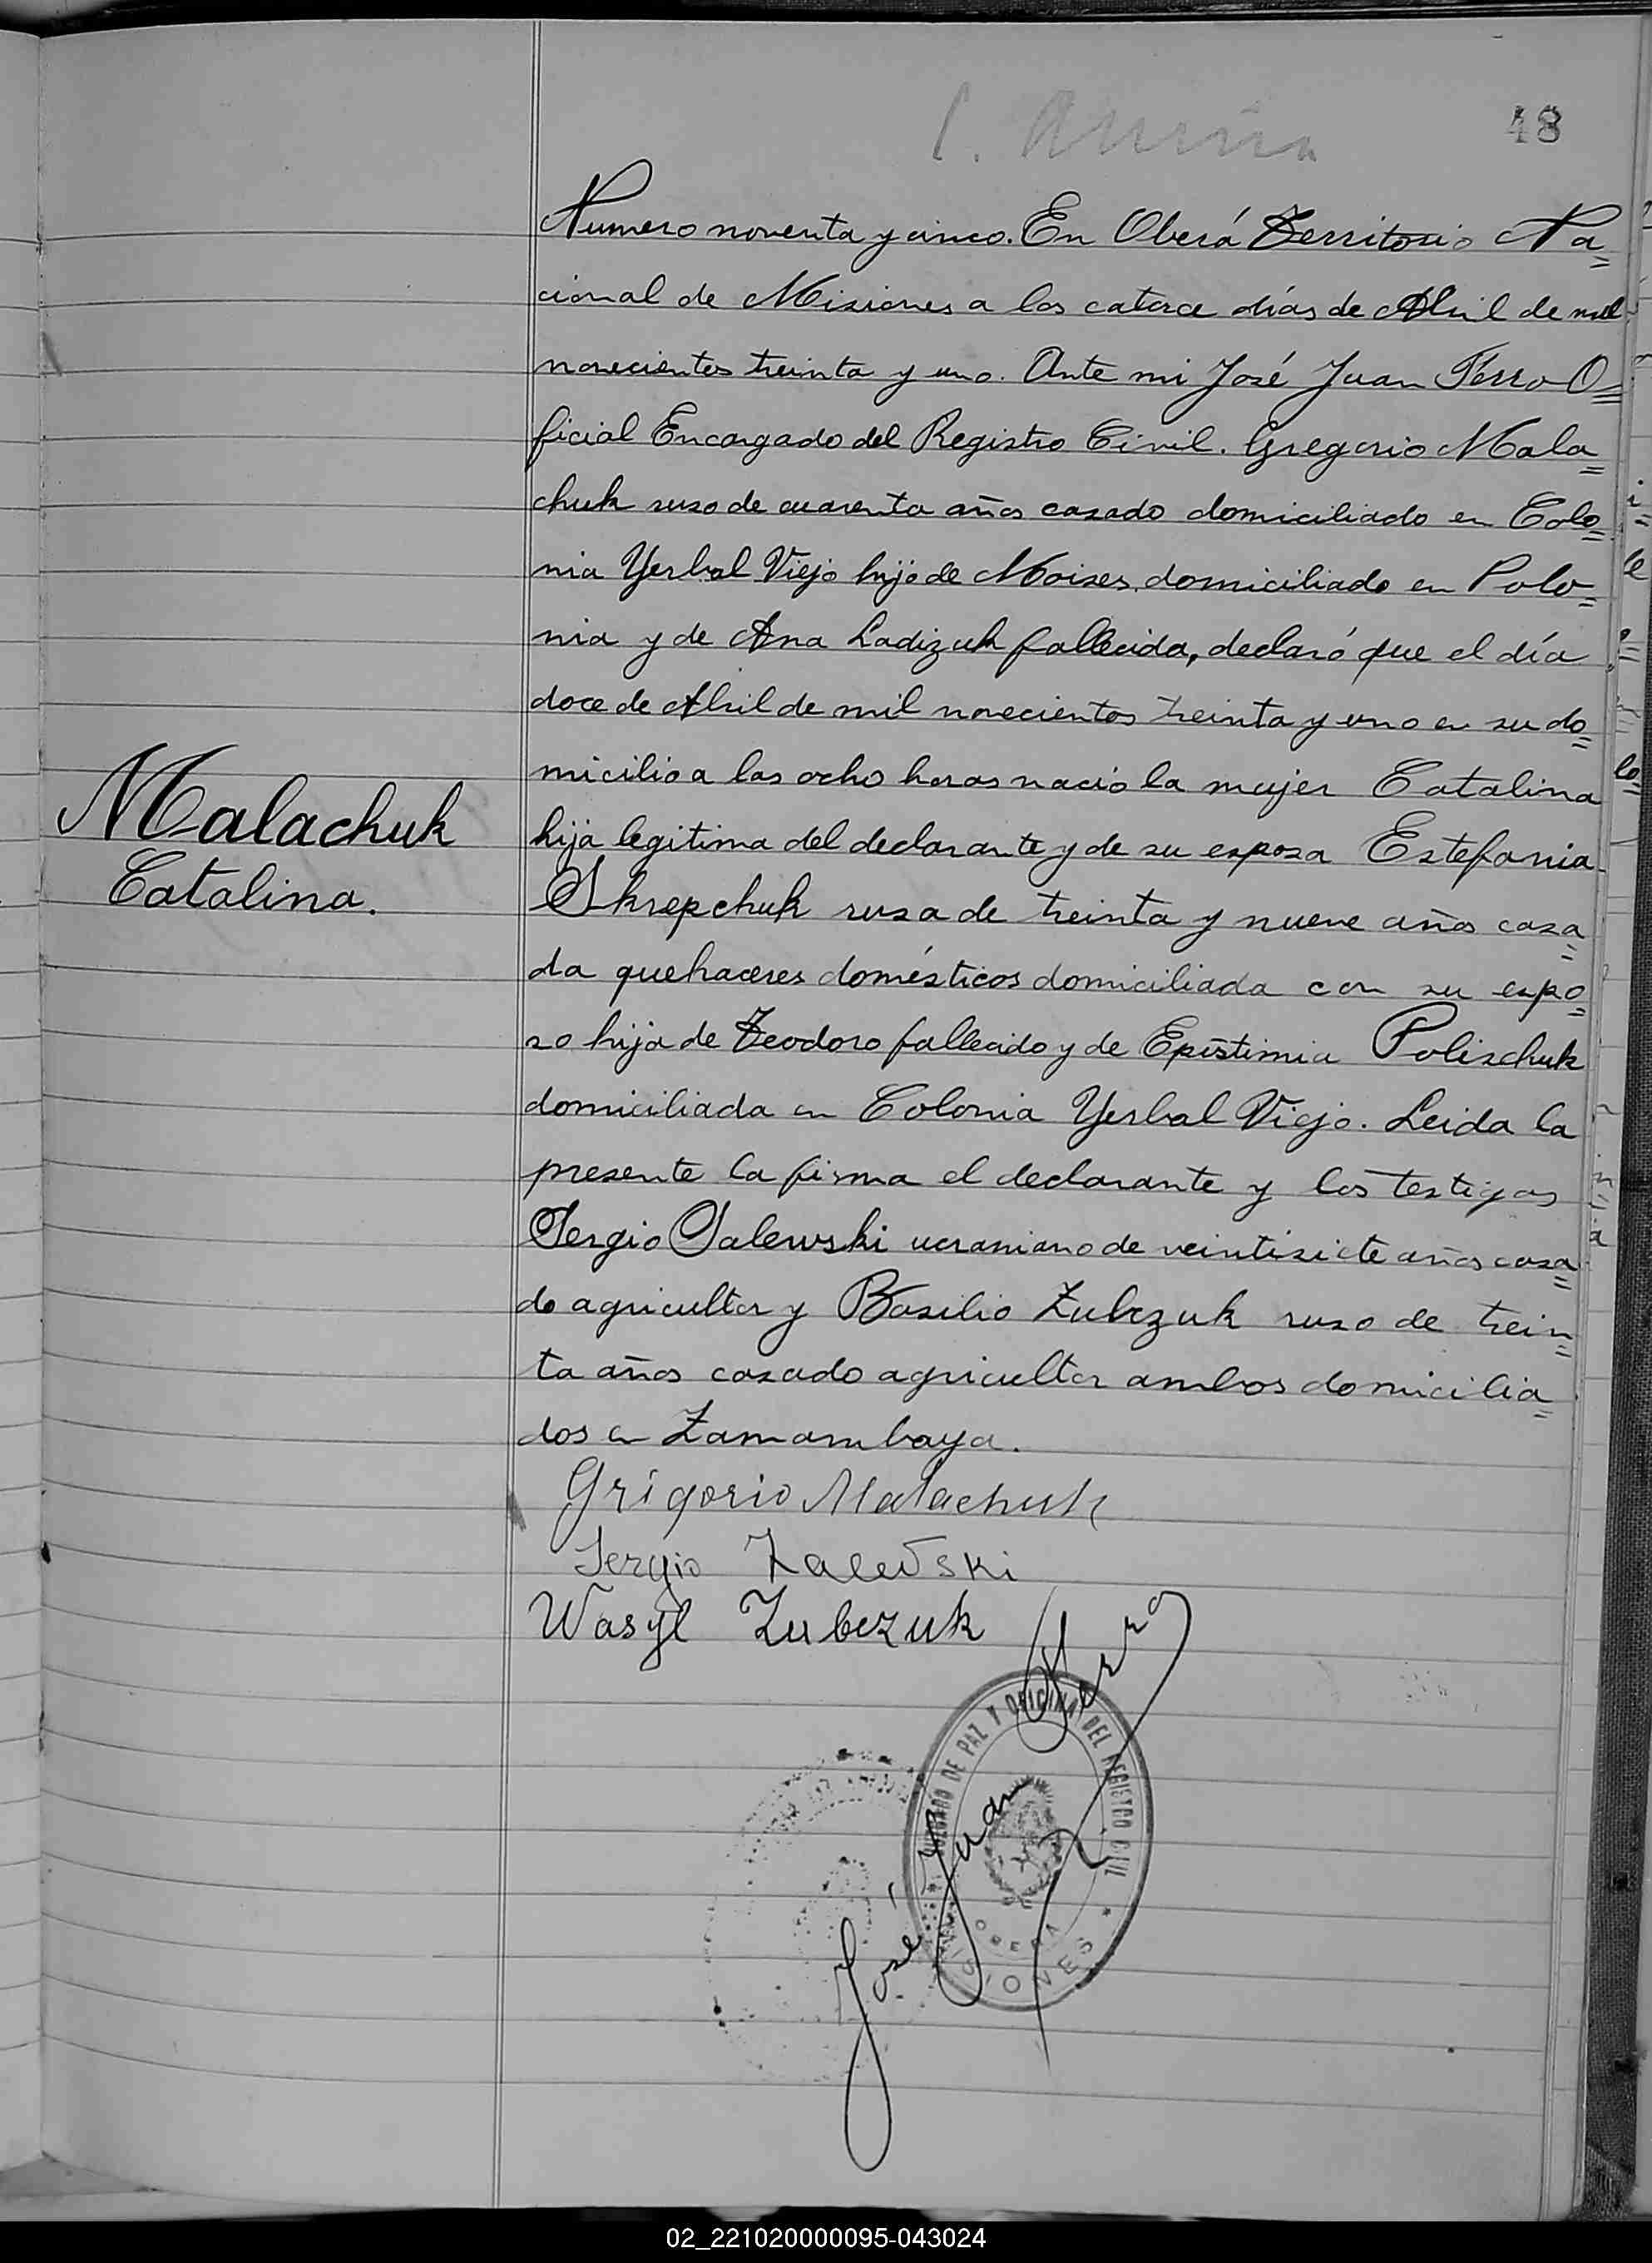 48
Numero noventa y cinco. En Oberá Territorio Na=
cional de Misiones a los catorce días de Abril de mil
novecientos treinta y uno. Ante mi José Juan Ferro O=
ficial Encargado del Registro Civil. Gregorio Mala=
chuk ruso de cuarenta años casado domiciliado en Colo=
nia Yerbal Viejo hijo de Moises domiciliado en Polo=
nia y de Ana Ladizuk fallecida, declaró que el día
doce de Abril de mil novecientos treinta y uno en su do=
micilio a las ocho horas nació la mujer Catalina
hija legitima del declarante y de su esposa Estefania
Skrepchuk rusa de treinta y nueve años casa=
da quehaceres domésticos domiciliada con su espo=
so hija de Teodoro fallecido y de Epistimia Polischuk
domiciliada en Colonia Yerbal Viejo. Leida la
presente la firma el declarante y los testigos
Sergio Salewski ucraniano de veintisiete años casa=
do agricultor y Basilio Zubczuk ruso de trein=
ta años casado agricultor ambos domicilia=
dos en Zamambaya.
Malachuk
Catalina.
Grigorio Malachuk
Sergio Zalewski
Wasyl Zubczuk
José Juan Ferro
JUZGADO DE PAZ Y OFICINA DEL REGISTRO CIVIL
OBERA
MISIONES
02_221020000095-043024